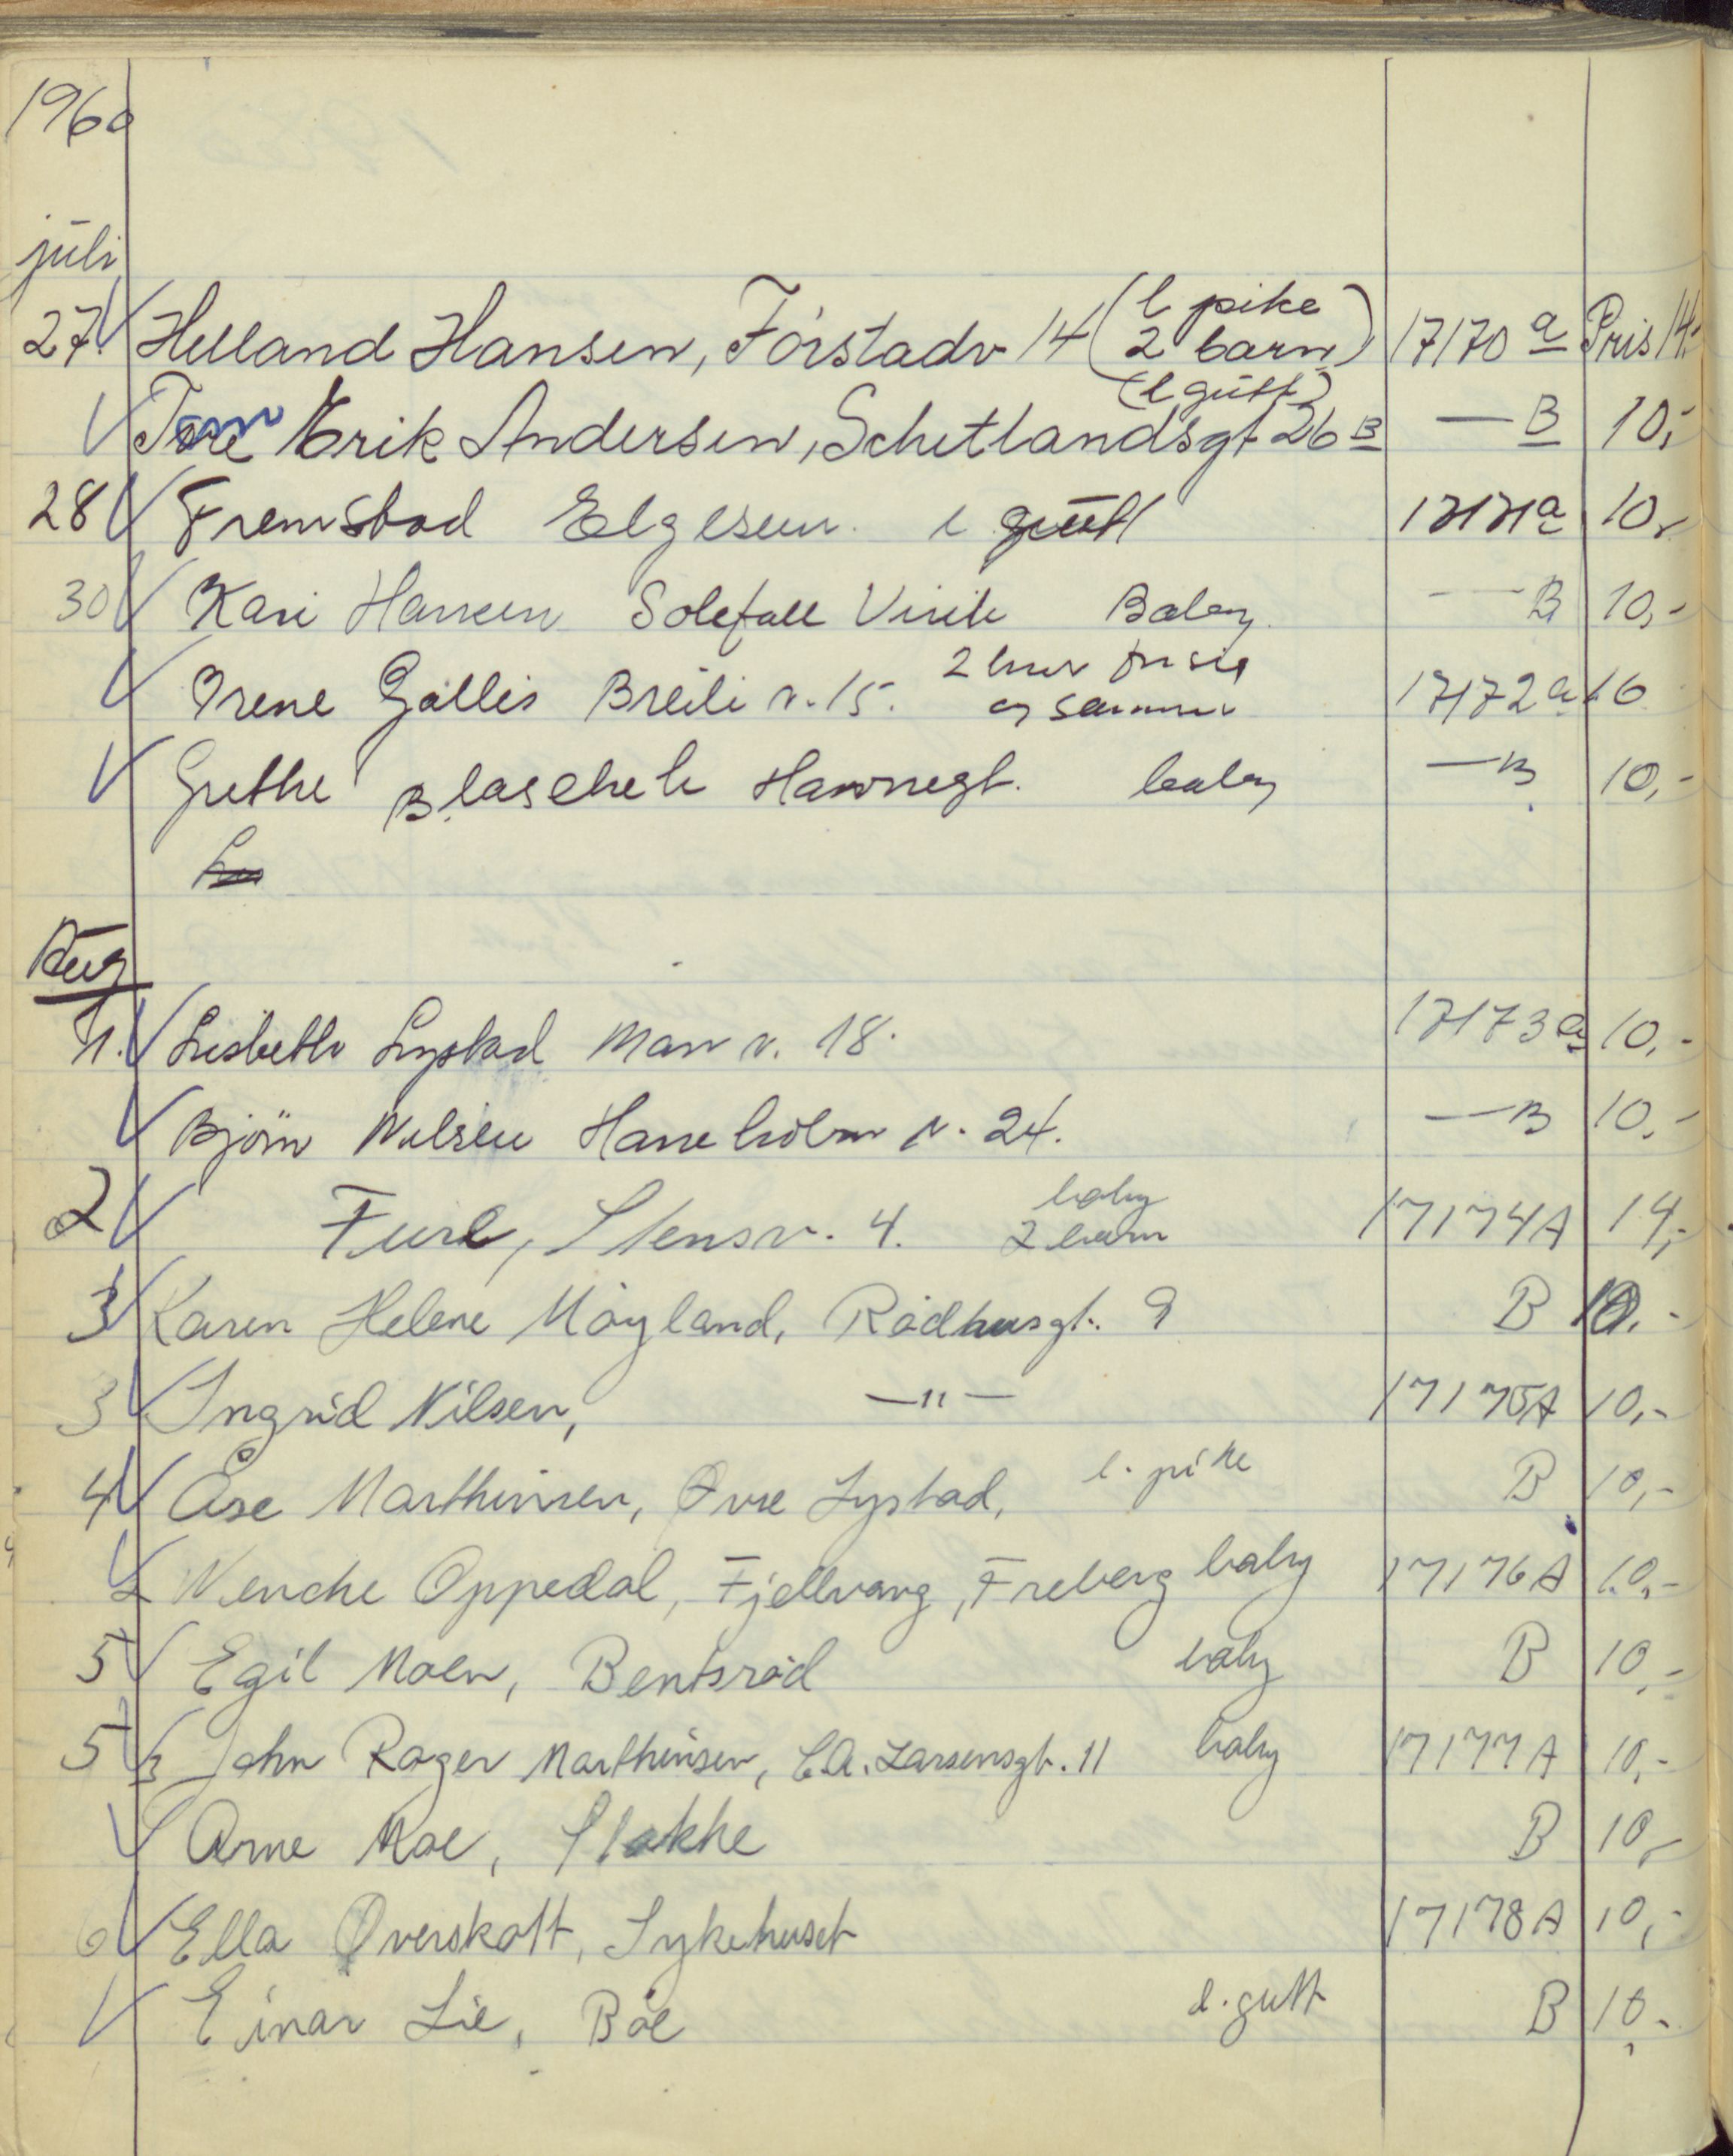 1960
juli
27. Helland Hansen, Fórstadv 14 (l pike 2 barn) 17170 a Pris 14.-
Tom Erik Andersen, Schetlandsgt 26 B (l gutt) — B 10,-
28 Fremstad Elgesem. l gutt 17171a 10,-
30 Kari Hansen Solefall Virik Baby — B 10,-
Irene Gallis Breili v. 15. 2 hver for sig og sammen 17172 a 16
Grethe Blaschek Havnegt. baby — B 10,-
Aug
1. Lisbeth Lystad Mær v. 18. 17173 a 10,-
Björn Nilsen Haneholm v. 24. — B 10,-
2 Fure, Stensv. 4. baby 2 barn 17174A 14,-
3 Karen Helene Möyland, Rådhusgt. 9 B 10.-
3 Ingrid Nilsen, —"— 17175A 10,-
4 Åse Marthinsen, Øvre Lystad, l. pike B 10,-
Wenche Oppedal, Fjellvang, Freberg baby 17176A 10,-
5 Egil Moen, Bentsrød baby B 10,-
5 John Roger Marthinsen, C.A. Larsensgt. 11 baby 17177A 10,-
Arne Moe, Stokke B 10,-
6 Ella Overskott, Sykehuset 17178A 10,-
Einar Lie, Bøe l. gutt B 10,-